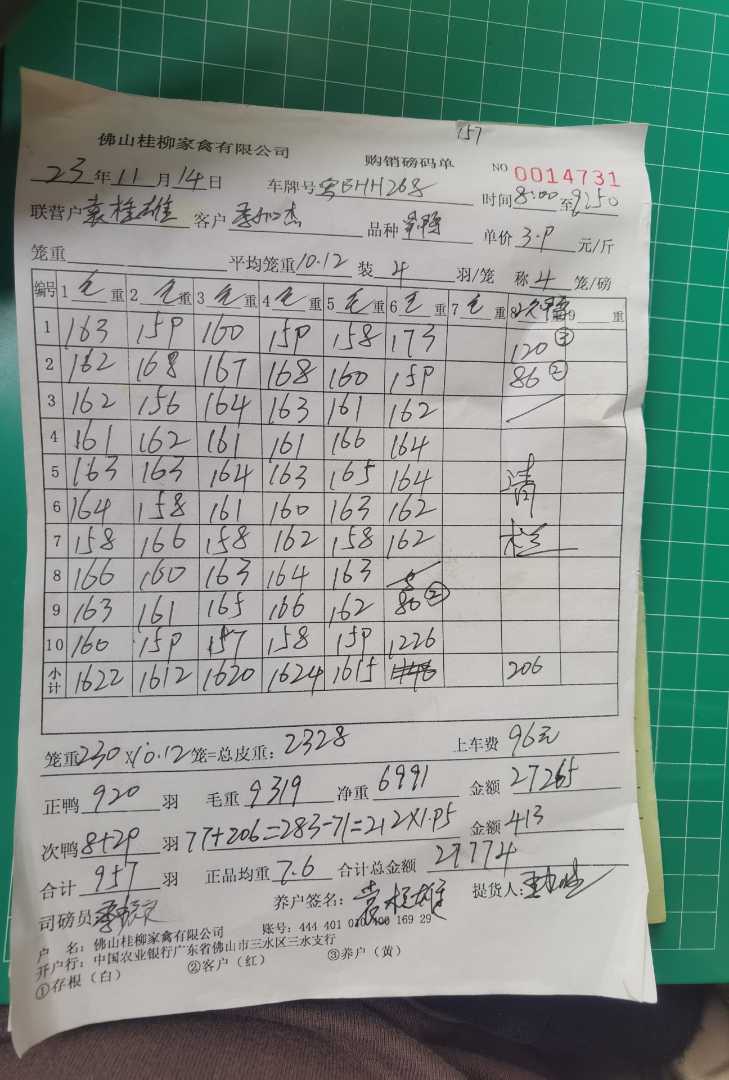 157
佛山桂柳家禽有限公司 购销磅码单 NO 0014731
23年11月14日 车牌号粤BHH268 时间8:00至9:50
联营户袁桂雄 客户 品种 单价3.9元/斤
笼重 平均笼重10.12 装4羽/笼 称4笼/磅
编号 1毛重 2毛重 3毛重 4毛重 5毛重 6毛重 7毛重 8次鸭 9重
1 163 159 160 159 158 173 120③
2 162 168 167 168 160 159 86②
3 162 156 164 163 161 162
4 161 162 161 161 166 164
5 163 163 164 163 165 164 清
6 164 158 161 160 163 162
7 158 166 158 162 158 162 栏
8 166 160 163 164 163
9 163 161 165 166 162 80②
10 160 159 157 158 159 1226
小计 1622 1612 1620 1624 1615 206
笼重230×10.12笼=总皮重：2328 上车费96元
正鸭920羽 毛重9319 净重6991 金额27265
次鸭8+29羽 77+206=283-71=212×1.95 金额413
合计957羽 正品均重7.6 合计总金额27774
司磅员 养户签名：袁桂雄 提货人：
户 名：佛山桂柳家禽有限公司 账号：444 401 010 400 169 29
开户行：中国农业银行广东省佛山市三水区三水支行
①存根（白） ②客户（红） ③养户（黄）